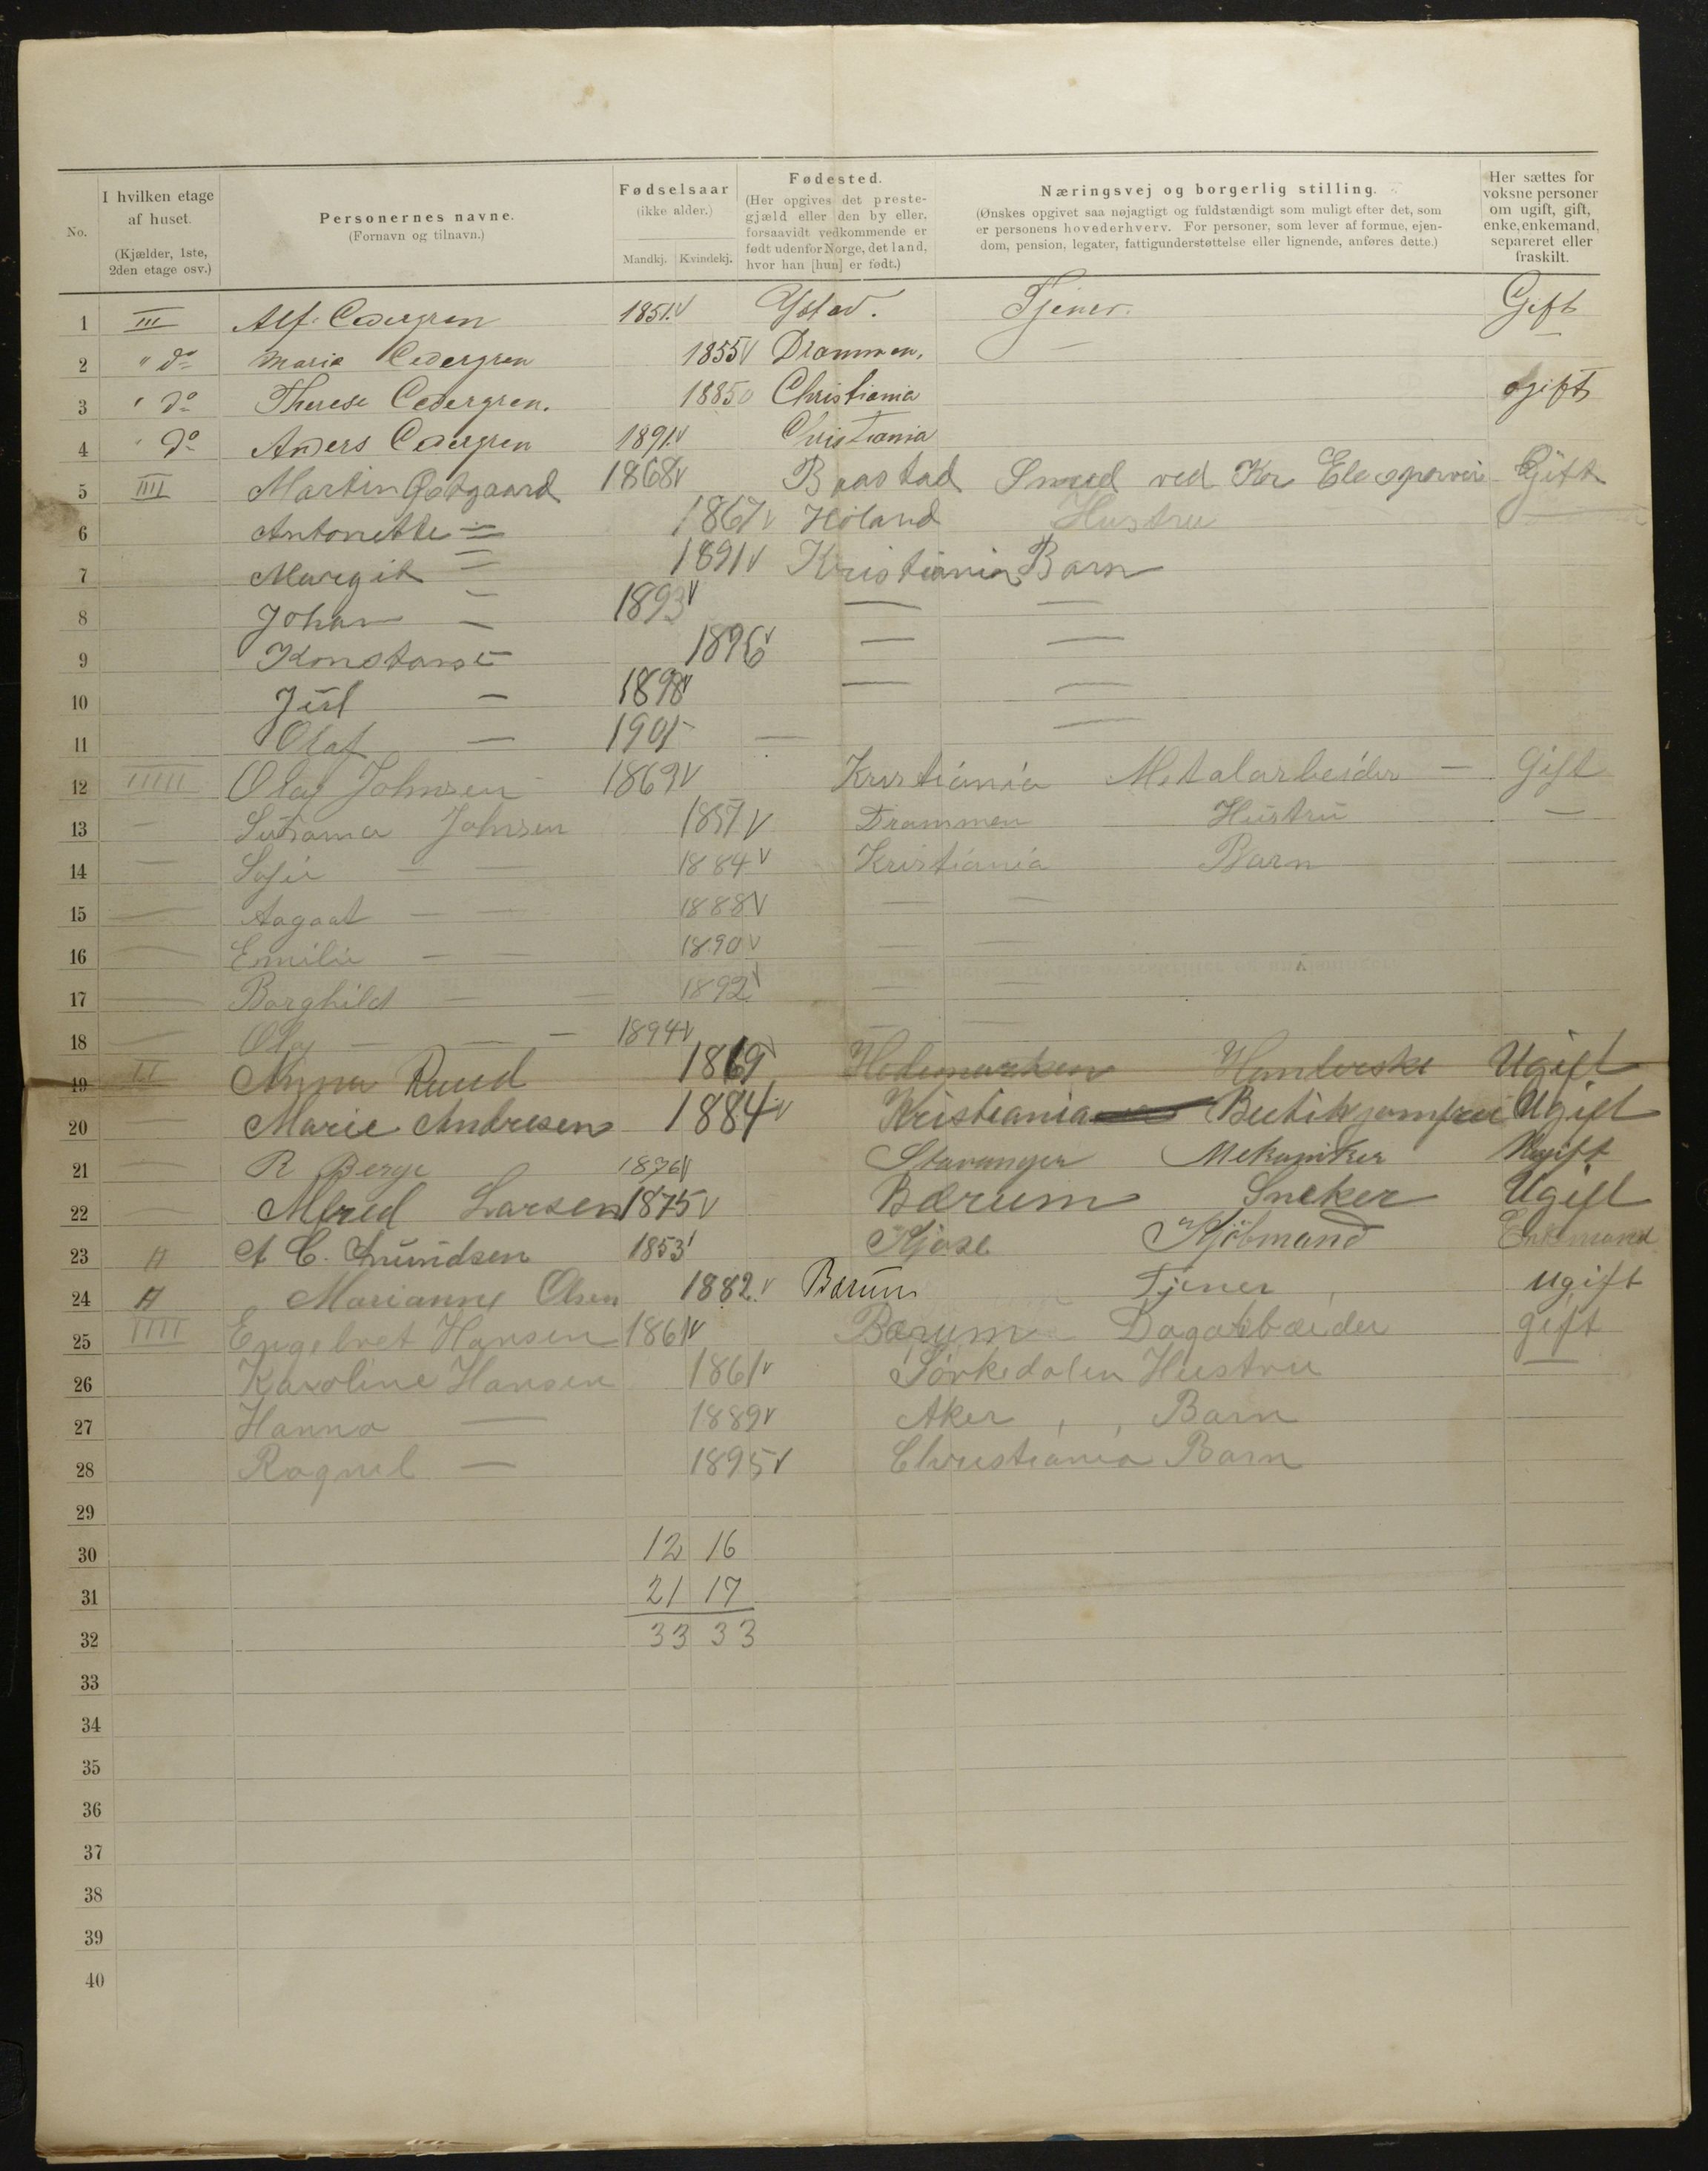 No. I hvilken etage af huset. (Kjælder, 1ste, 2den etage osv.) Personernes navne. (Fornavn og tilnavn.) Fødselsaar (ikke alder.) Mandkj. Kvindekj. Fødested. (Her opgives det prestegjæld eller den by eller, forsaavidt vedkommende er født udenfor Norge, det land, hvor han [hun] er født.) Næringsvej og borgerlig stilling. (Ønskes opgivet saa nøjagtigt og fuldstændigt som muligt efter det, som er personens hovederhverv. For personer, som lever af formue, ejendom, pension, legater, fattigunderstøttelse eller lignende, anføres dette.) Her sættes for voksne personer om ugift, gift, enke, enkemand, separeret eller fraskilt.
1 III Alf. Cedergren 1851 v Ystad. Tjener. Gift
2 " do Maria Cedergren 1855 v Drammen. — —
3 " do Therese Cedergren. 1885 Christiania ogift
4 " do Anders Cedergren 1891 v Christiania
5 IIII Martin Østgaard 1868 v Baastad Smed ved Kr Gift
6 Antonette — 1867 v Høland Hustru —
7 Margit — 1891 v Kristiania Barn
8 Johan — 1893 v — —
9 Konstanse — 1896 v — —
10 Jul — 1898 v — —
11 Olaf — 1901 — —
12 IIIII Olaf Johnsen 1869 v Kristiania Metalarbeider — Gift
13 — Johnsen 1857 v Drammen Hustru —
14 — Sofie — — 1884 v Kristiania Barn
15 — Aagaat — — 1888 v — —
16 — Emilie — — 1890 v — —
17 — Borghild — — 1892 v — —
18 — Olaf — — — 1894 v — —
19 II Anna Ruud 1869 v Hedemarken Handerske Ugift
20 — Marie Andresen 1884 v Kristiania Butikjomfru Ugift
21 — R Berge 1876 v Stavanger Mekaniker Ugift
22 — Alfred Larsen 1875 v Bærum Sneker Ugift
23 II A C. 1853 v Kjøbmand Enkemand
24 II Marianne Olsen 1882. v Bærum Tjener Ugift
25 IIII Engelbret Hansen 1861 v Bærum Dagarbeider gift
26 Karoline Hansen 1861 v Sørkedalen Hustru —
27 Hanna — 1889 v Aker Barn
28 Ragnil — 1895 v Christiania Barn
29
30 12 16
31 21 17
32 33 33
33
34
35
36
37
38
39
40